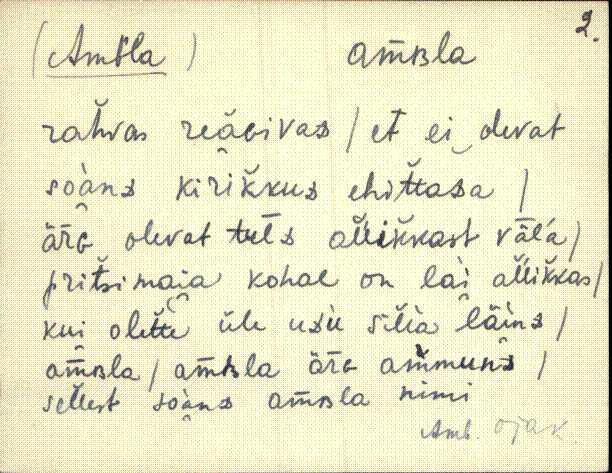 2.
(Ambla) am̄ʙla
rah̆vas reäɢivaᴅ / et ei olevat
soànᴅ kirik̆kuᴅ ehit̆taᴅa /
ärɢ olevat tulᴅ al̆lik̆kast väl̀a /
prit̆simaja kohal on lai al̆lik̆kas /
kui olette üle uᴅu sil̀la läinᴅ /
am̄ʙla / am̄ʙla ärɢ am̆munᴅ /
sel̆lest soànᴅ am̄ʙla nimi
Amb. Ojak.